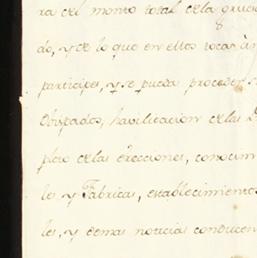 ra del monto total de la grues
do, y de lo que en ellos tocar à
participes, y se pueda proceder
Obispados, havilitacion de las
pleo de las erecciones, conocim
les y Fabricas, establecimiento
les, y demas noticias conducen